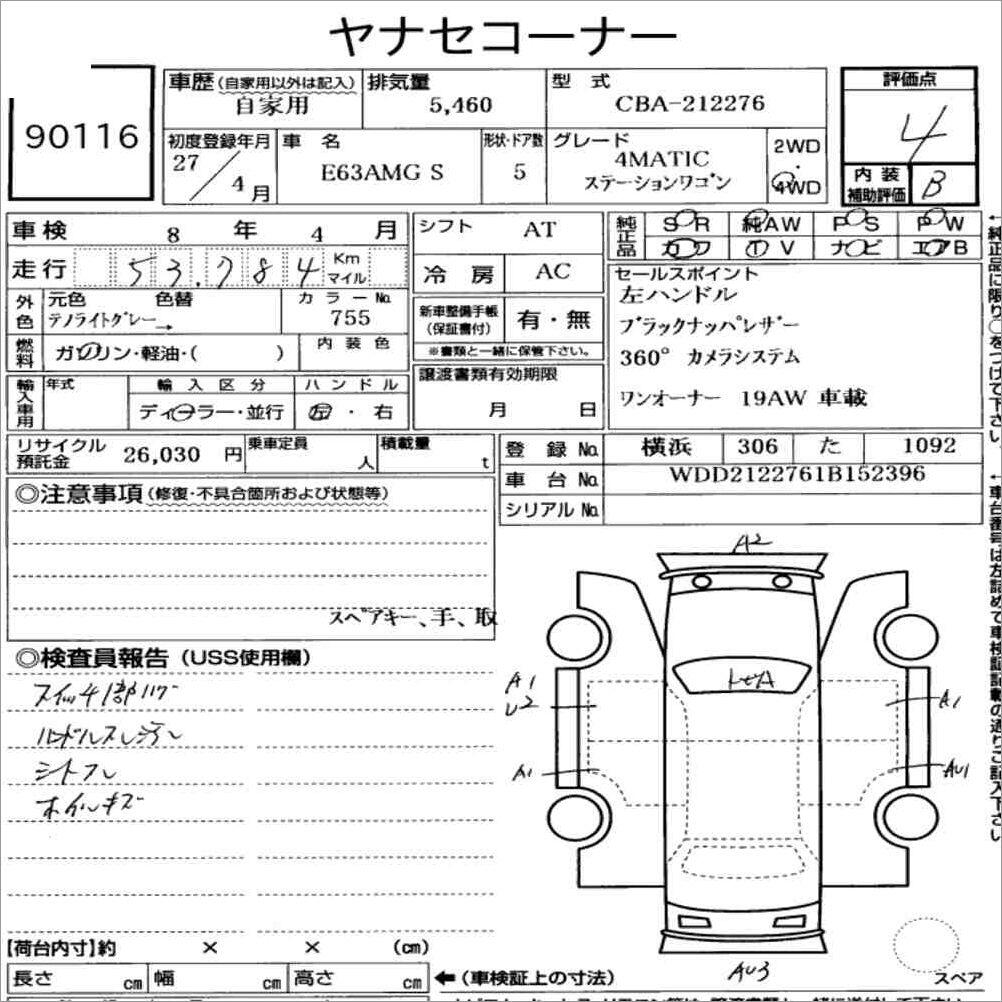 ヤナセコーナー
90116
車歴 (自家用以外は記入) 自家用
排気量 5,460
型式 CBA-212276
評価点 4
初度登録年月 27/4月
車名 E63AMG S
形状・ドア数 5
グレード 4MATIC ステーションワゴン
2WD・4WD
内装補助評価 B
車検 8年 4月
シフト AT
純正品 SR 純AW PS PW
カワ TV ナビ エアB
走行 53,784 Km マイル
冷房 AC
セールスポイント
左ハンドル
ブラックナッパレザー
360° カメラシステム
ワンオーナー 19AW 車載
外色 元色 色替 テノライトグレー→
カラーNo. 755
新車整備手帳(保証書付) 有・無
※書類と一緒に保管下さい。
燃料 ガソリン・軽油・( )
内装色
譲渡書類有効期限 月 日
輸入車用 年式
輸入区分 ディーラー・並行
ハンドル 左・右
リサイクル預託金 26,030円
乗車定員 人
積載量 t
登録No. 横浜 306 た 1092
車台No. WDD2122761B152396
シリアルNo.
←純正品に限り○をつけて下さい。
←車台番号は左詰めて車検証記載の通りご記入下さい
◎注意事項(修復・不具合箇所および状態等)
スペアキー、手、取
◎検査員報告(USS使用欄)
スイッチ部ハゲ
ハンドルスレ
シートスレ
ホイルキズ
A2
A1
U2
A1
A1
AU1
AU3
スペア
【荷台内寸】約 × × (cm)
長さ cm 幅 cm 高さ cm
←(車検証上の寸法)